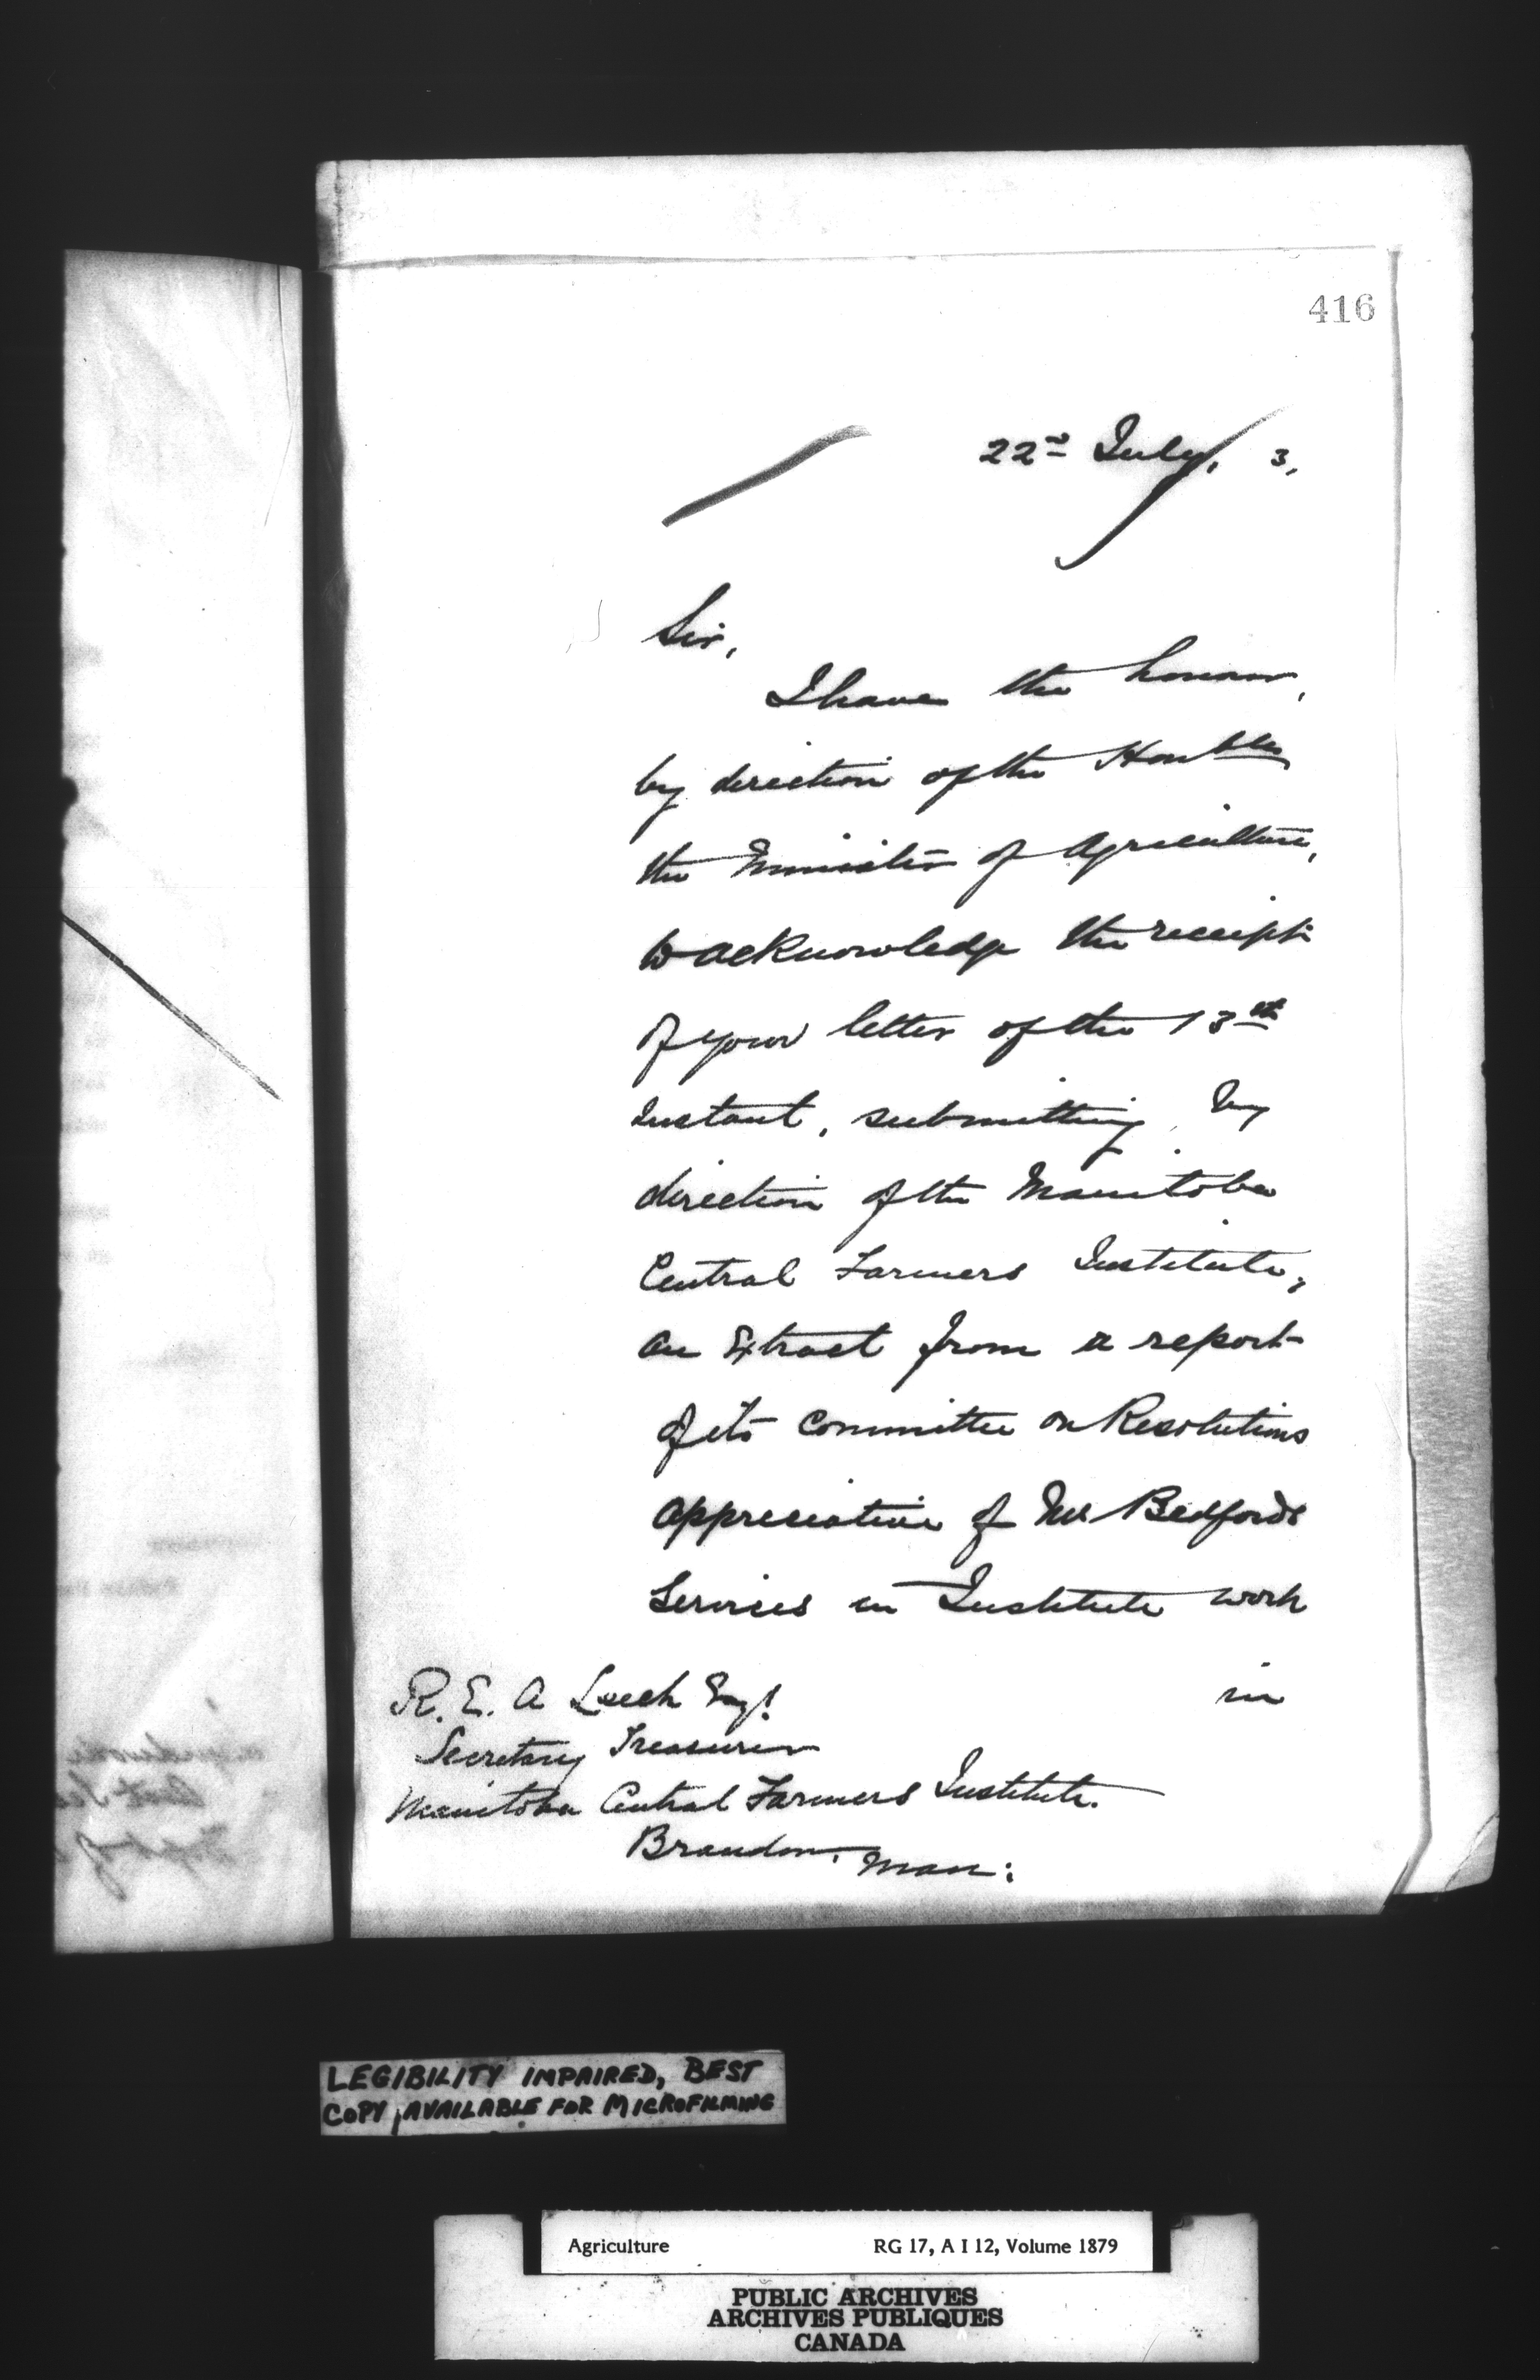 416
22nd July, 3,
Sir,
I have the honour,
by direction of the Honble
the Minister of Agriculture,
to acknowledge the receipt
of your letter of the 13th
Instant, submitting, by
direction of the Manitoba
Central Farmers Institute,
an Extract from a report
of its Committee on Resolutions
appreciative of Mr Bedfords
Services in Institute work
in
R. E. A Leech Esq!
Secretary Treasurer
Manitoba Central Farmers Institute.
Brandon, Man:
LEGIBILITY IMPAIRED, BEST
COPY AVAILABLE FOR MICROFILMING
Agriculture RG 17, A I 12, Volume 1879
PUBLIC ARCHIVES
ARCHIVES PUBLIQUES
CANADA